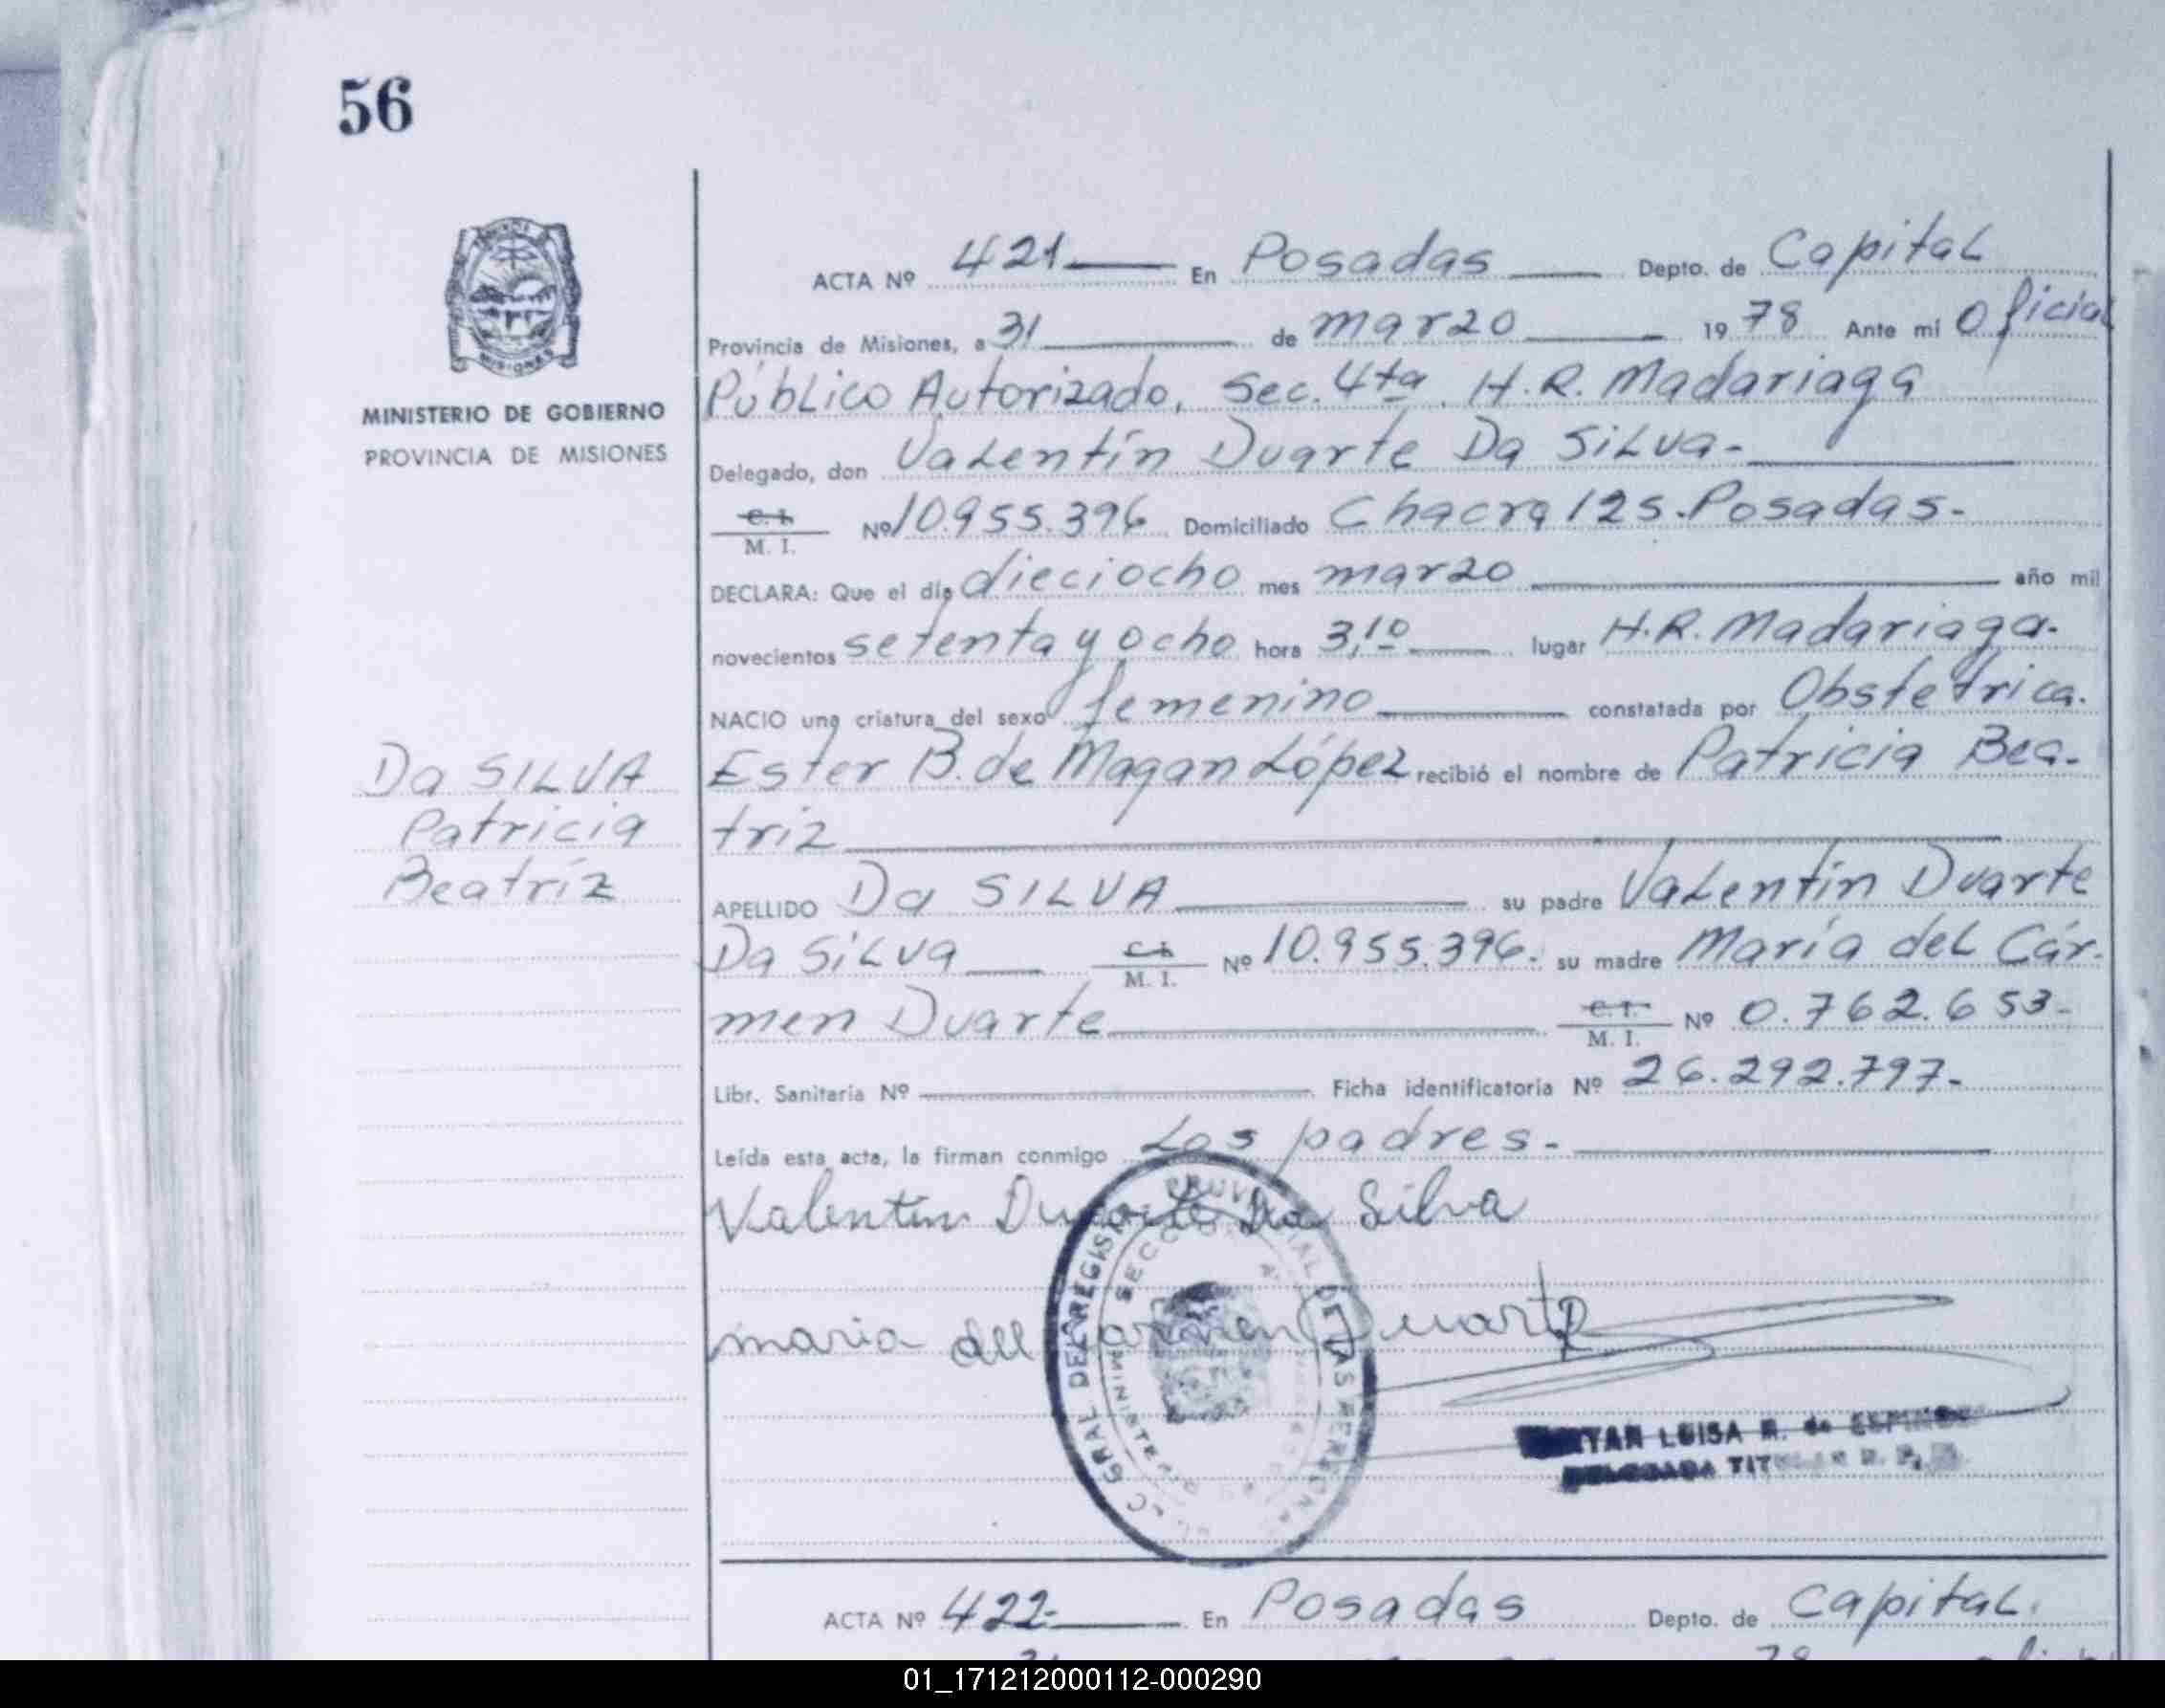 56
MINISTERIO DE GOBIERNO
PROVINCIA DE MISIONES
ACTA Nº 421 En Posadas Depto. de Capital
Provincia de Misiones, a 31 de marzo 1978 Ante mí Oficial
Público Autorizado, Sec. 4ta. H.R. Madariaga
Delegado, don Valentín Duarte Da Silva-
C. I. M. I. Nº 10.955.396 Domiciliado Chacra 125.Posadas-
DECLARA: Que el día dieciocho mes marzo año mil
novecientos setenta y ocho hora 3,10 lugar H.R. Madariaga.
NACIO una criatura del sexo femenino constatada por Obstetrica.
Ester B. de Magan López recibió el nombre de Patricia Bea-
triz
Da SILVA
Patricia
Beatríz
APELLIDO Da SILVA su padre Valentín Duarte
Da Silva C. I. M. I. Nº 10.955.396. su madre María del Cár-
men Duarte C. I. M. I. Nº 0.762.653-
Libr. Sanitaria Nº Ficha identificatoria Nº 26.292.797-
Leída esta acta, la firman conmigo Los padres-
Valentin Duarte Da Silva
maria del Carmen Duarte
GRAL DEL REGISTRO PROVINCIAL DE LAS PERSONAS
SECCION
MINISTERIO
LUISA R. de
DELEGADA TITULAR
ACTA Nº 422- En Posadas Depto. de Capital.
01_171212000112-000290